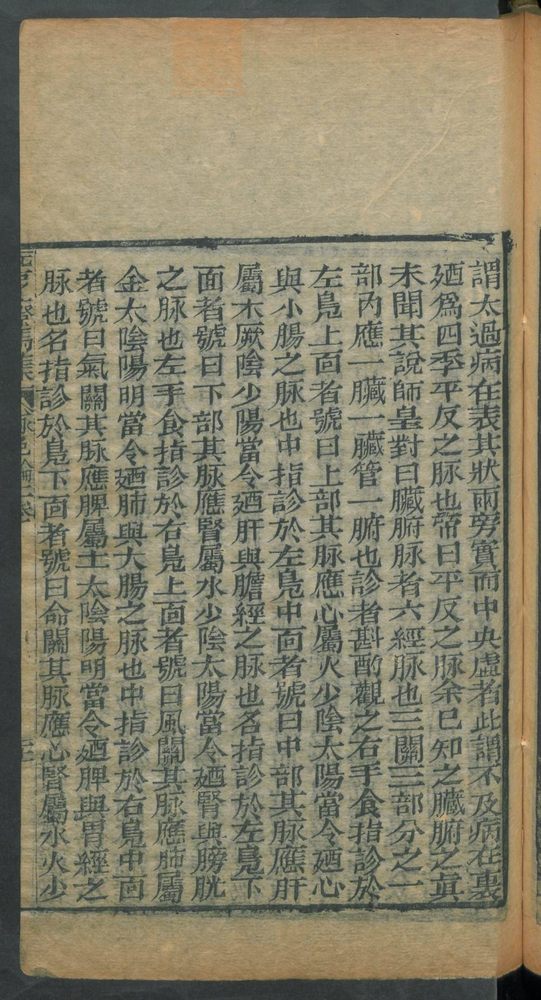 謂太過病在表其狀兩旁實而中央虛者此謂不及病在裏
廼爲四季平反之脉也帝曰平反之脉余已知之臟腑之眞
未聞其說師皇對曰臟腑脉者六經脉也三關三部分之一
部內應一臟一臟管一腑也診者斟酌觀之右手食指診於
左鳧上面者號曰上部其脉應心屬火少陰太陽當令廼心
與小腸之脉也中指診於左鳧中面者號曰中部其脉應肝
屬木厥陰少陽當令廼肝與膽經之脉也名指診於左鳧下
面者號曰下部其脉應腎屬水少陰太陽當令廼腎與膀胱
之脉也左手食指診於右鳧上面者號曰風關其脉應肺屬
金太陰陽明當令廼肺與大腸之脉也中指診於右鳧中面
者號曰氣關其脉應脾屬土太陰陽明當令廼脾與胃經之
脉也名指診於鳧下面者號曰命關其脉應心腎屬水火少